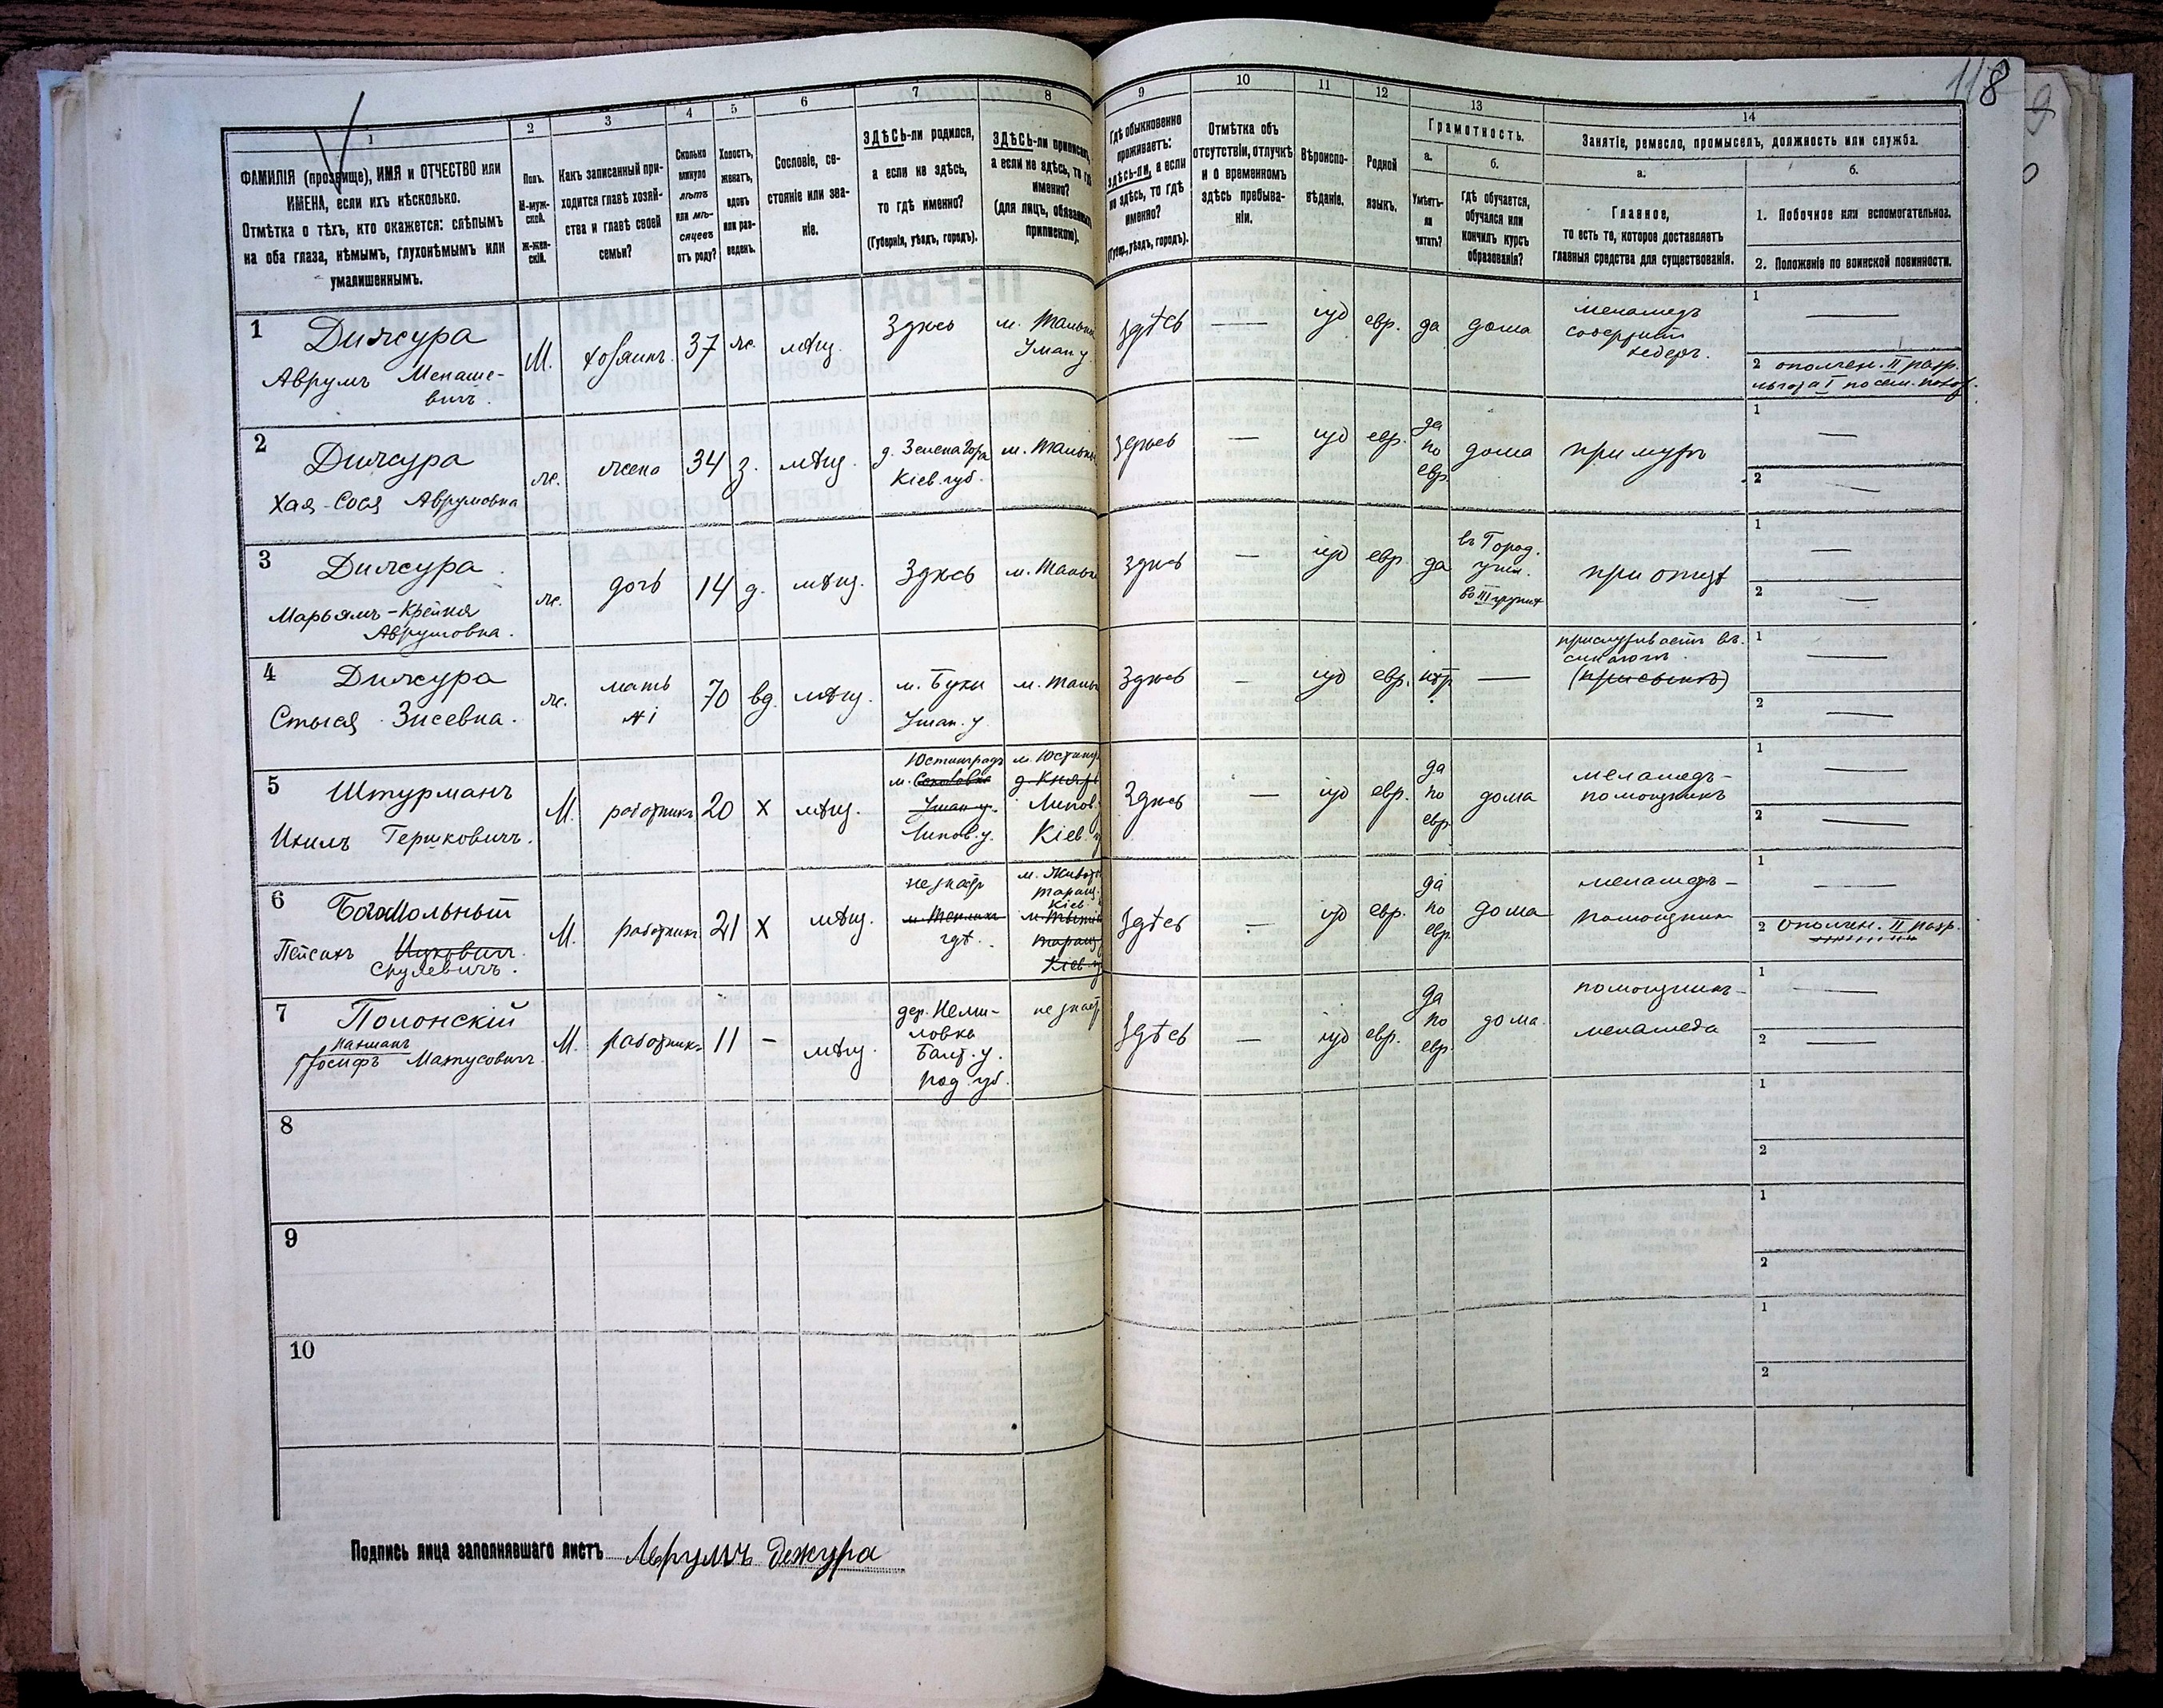 118
1
2
3
4
5
6
7
8
9
10
11
12
13
14
ФАМИЛІЯ (прозвище), ИМЯ и ОТЧЕСТВО или
ИМЕНА, если ихъ нѣсколько.
Отмѣтка о тѣхъ, кто окажется: слѣпымъ
на оба глаза, нѣмымъ, глухонѣмымъ или
умалишеннымъ.
Полъ.
М-муж-
ской.
Ж-жен-
скій.
Какъ записанный при-
ходится главѣ хозяй-
ства и главѣ своей
семьи?
Сколько
минуло
лѣтъ
или мѣ-
сяцевъ
отъ роду?
Холостъ,
женатъ,
вдовъ
или раз-
веденъ.
Сословіе, со-
стояніе или зва-
ніе.
ЗДѢСЬ-ли родился,
а если не здѣсь,
то гдѣ именно?
(Губернія, уѣздъ, городъ).
ЗДѢСЬ-ли приписанъ,
а если не здѣсь, то гдѣ
именно?
(для лицъ, обязанныхъ
припискою).
Гдѣ обыкновенно
проживаетъ:
здѣсь-ли, а если
не здѣсь, то гдѣ
именно?
(Губер., уѣздъ, городъ).
Отмѣтка объ
отсутствіи, отлучкѣ
и о временномъ
здѣсь пребыва-
ніи.
Вѣроиспо-
вѣданіе.
Родной
языкъ.
Грамотность.
а.
Умѣетъ-
ли
читать?
б.
Гдѣ обучается,
обучался или
кончилъ курсъ
образованія?
Занятіе, ремесло, промыселъ, должность или служба.
а.
Главное,
то есть то, которое доставляетъ
главныя средства для существованія.
б.
1. Побочное или вспомогательное.
2. Положеніе по воинской повинности.
1
Дижура
Аврумъ Менаше-
вичъ.
М.
хозяинъ.
37
ж.
мѣщ.
Здѣсь
м. Тальное
Уман. у.
здѣсь
—
іуд
евр.
да
дома
меламедъ
содержит
хедеръ.
1 —
2 ополчен. II разр.
льгота I по сем. полож.
2
Дижура
Хая-Сося Аврумовна
ж.
жена
34
з.
мѣщ.
д. Зелена Гора
Кіев. губ.
м. Тальное
Здѣсь
—
іуд
евр.
да
по
евр.
дома
при мужѣ
1 —
2 —
3
Дижура
Марьямъ-Крейня
Аврумовна.
ж.
дочь
14
д.
мѣщ.
Здѣсь
м. Тальное
здѣсь
—
іуд
евр.
да
въ Город.
учил.
во III группѣ
при отцѣ
1 —
2 —
4
Дижура
Стыся Зисевна.
ж.
мать
№ 1
70
вд.
мѣщ.
м. Буки
Уман. у.
м. Тальное
Здѣсь
—
іуд
евр.
нѣтъ
—
прислуживаетъ въ
синагогѣ.
(при сынѣ)
1 —
2 —
5
Штурманъ
Ихилъ Гершковичъ.
М.
работникъ
20
х
мѣщ.
Юстинградъ
м. Соколовка
Уман. у.
Липов. у.
м. Юстинград
Липов.
Кіев.
Здѣсь
—
іуд
евр.
да
по
евр.
дома
меламедъ-
помощникъ
1 —
2 —
6
Богомольный
Пейсахъ Ицковичъ
Срулевичъ.
М.
работникъ
21
х
мѣщ.
не знаетъ
гдѣ.
м. Живот
таращ.
Кіев.
таращ.
Кіев.
здѣсь
—
іуд
евр.
да
по
евр.
дома
меламедъ-
помощник
1 —
2 ополчен. II разр.
7
Полонскій
Нахманъ
Іосифъ Матусовичъ.
М.
работникъ
11
-
мѣщ.
дер. Неми-
ловка
Балт. у.
под. губ.
не знаетъ
здѣсь
—
іуд
евр.
да
по
евр.
дома.
помощникъ-
меламеда
1 —
2 —
8
1
2
9
1
2
10
1
2
Подпись лица заполнявшаго листъ Аврумъ Дежура